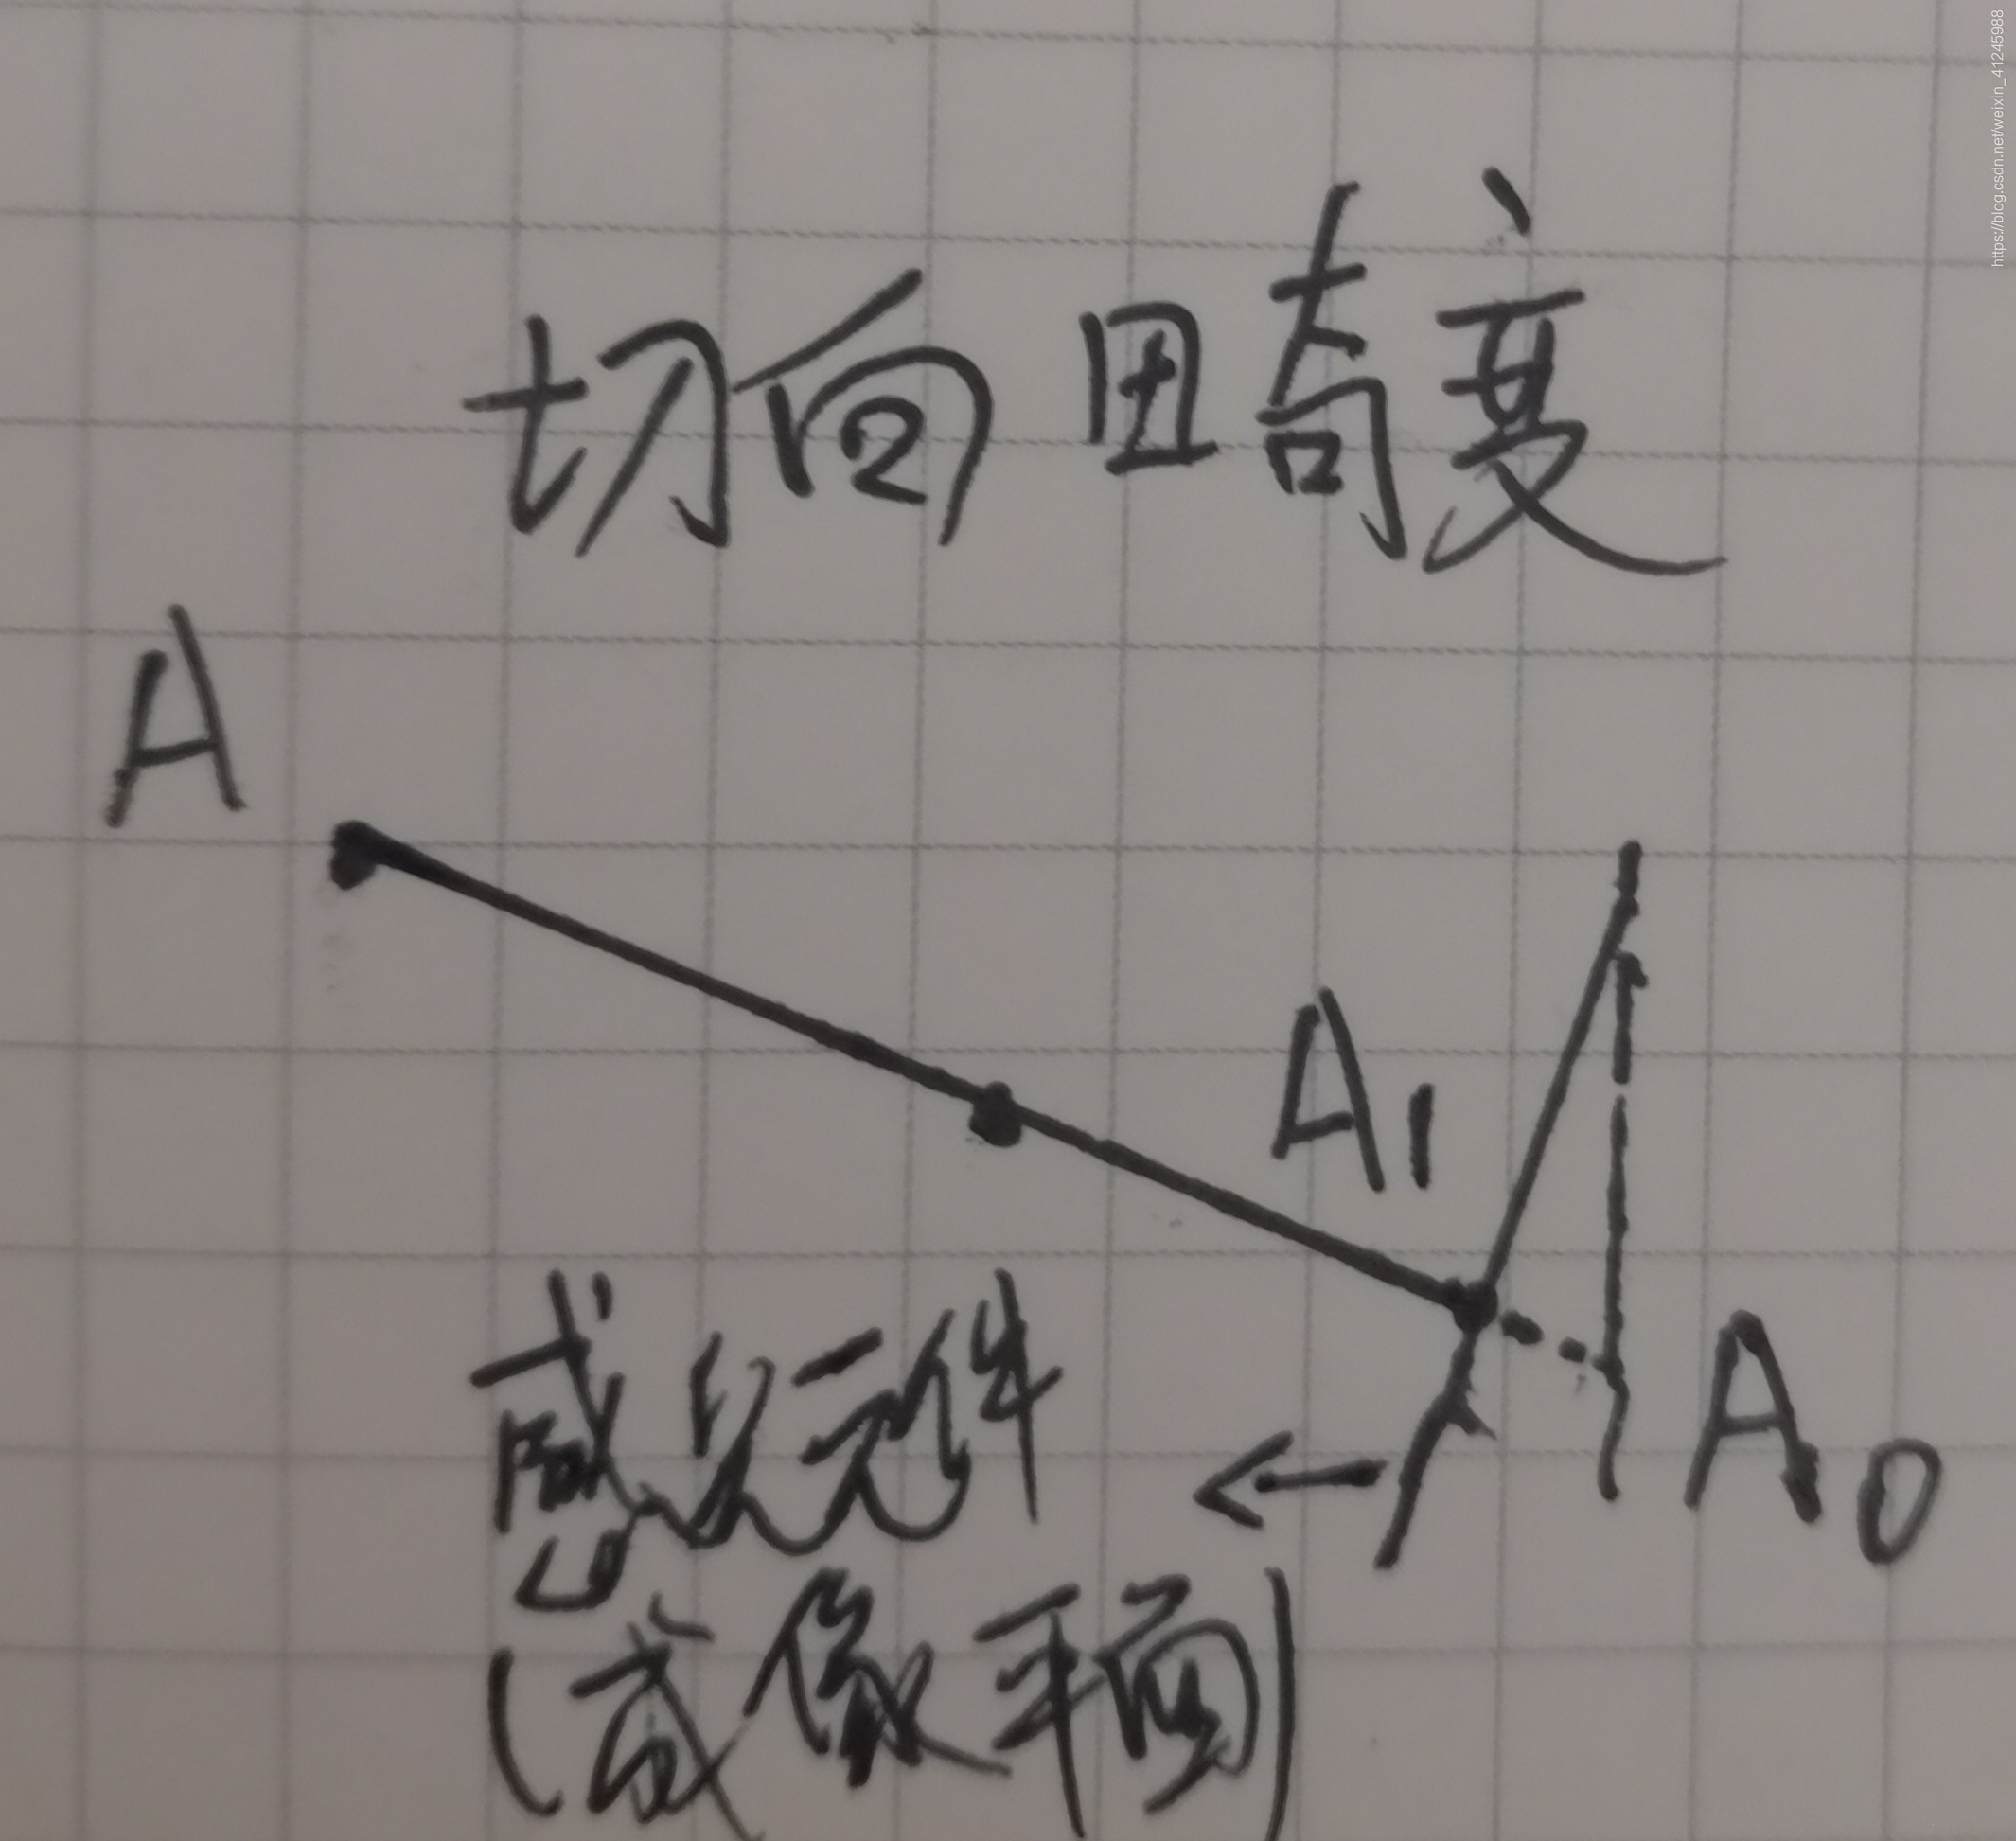 https://blog.csdn.net/weixin_41245988
切向畸变
A
A1
A0
感光元件
(成像平面)